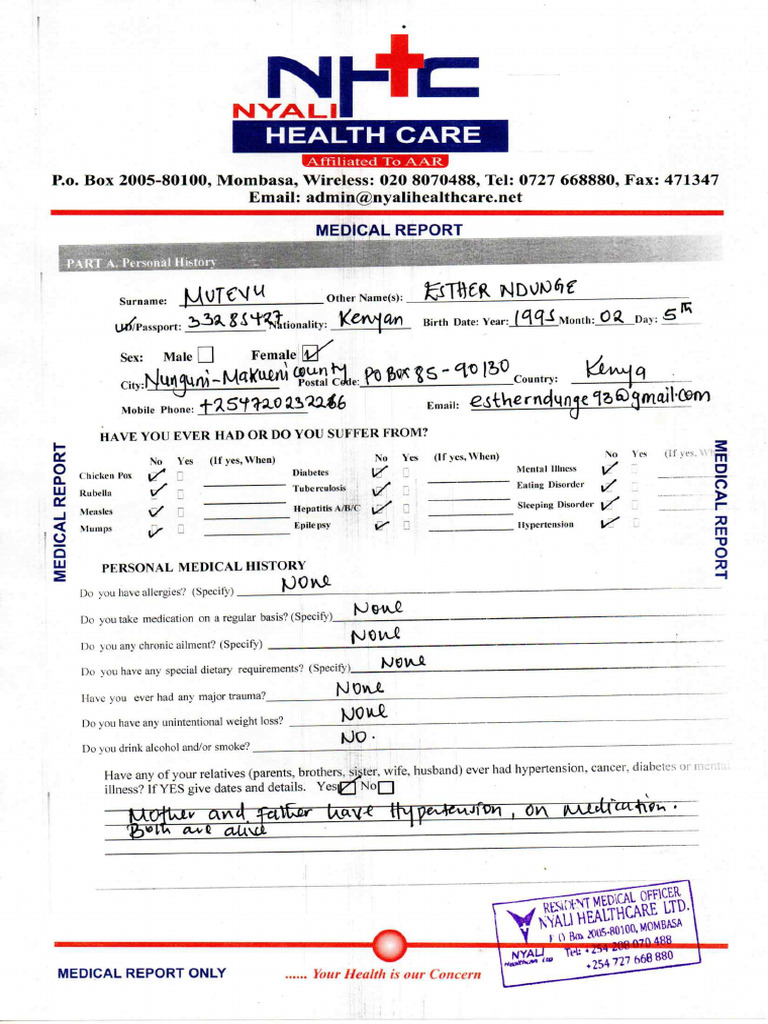 NHC
NYALI
HEALTH CARE
Affiliated To AAR
P.o. Box 2005-80100, Mombasa, Wireless: 020 8070488, Tel: 0727 668880, Fax: 471347
Email: admin@nyalihealthcare.net
MEDICAL REPORT
PART A. Personal History
Surname: MUTEVU Other Name(s): ESTHER NDUNGE
ID/Passport: 33285427 Nationality: Kenyan Birth Date: Year: 1995 Month: 02 Day: 5th
Sex: Male Female ✓
City: Nunguni-Makueni county Postal Code: PO Box 85-90130 Country: Kenya
Mobile Phone: +254720232266 Email: estherndunge93@gmail.com
HAVE YOU EVER HAD OR DO YOU SUFFER FROM?
No Yes (If yes, When) No Yes (If yes, When) No Yes (If yes, Wh
Chicken Pox ✓ Diabetes ✓ Mental Illness ✓
Rubella ✓ Tuberculosis ✓ Eating Disorder ✓
Measles ✓ Hepatitis A/B/C ✓ Sleeping Disorder ✓
Mumps ✓ Epilepsy ✓ Hypertension ✓
MEDICAL REPORT
MEDICAL REPORT
PERSONAL MEDICAL HISTORY
Do you have allergies? (Specify) None
Do you take medication on a regular basis? (Specify) None
Do you any chronic ailment? (Specify) None
Do you have any special dietary requirements? (Specify) None
Have you ever had any major trauma? None
Do you have any unintentional weight loss? None
Do you drink alcohol and/or smoke? NO.
Have any of your relatives (parents, brothers, sister, wife, husband) ever had hypertension, cancer, diabetes or mental
illness? If YES give dates and details. Yes ✓ No
Mother and Father have Hypertension, on medication.
Both are alive
RESIDENT MEDICAL OFFICER
NYALI HEALTHCARE LTD.
P O Box 2005-80100, MOMBASA
Tel: +254 208 070 488
+254 727 668 880
NYALI
Healthcare Ltd
MEDICAL REPORT ONLY
...... Your Health is our Concern